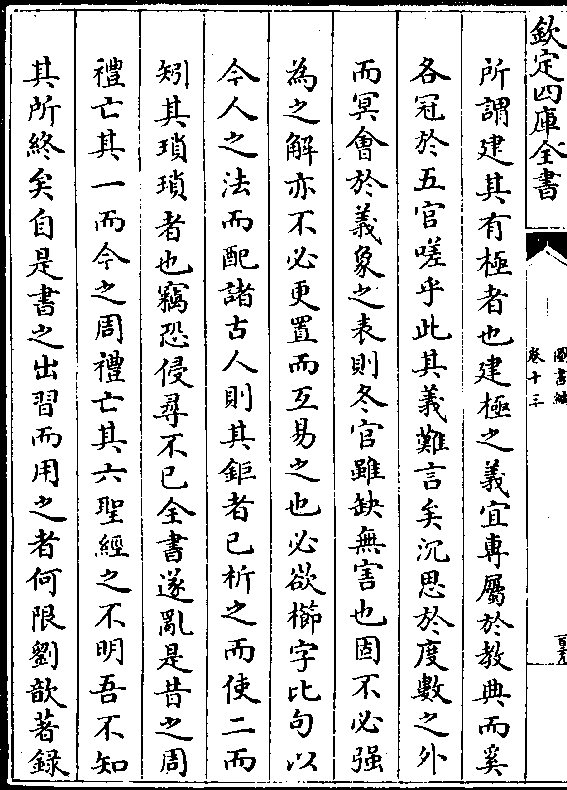 欽定四庫全書
圖書編
卷十三
所謂建其有極者也建極之義宜專屬於教典而奚
各冠於五官嗟乎此其義難言矣沉思於度數之外
而冥會於義象之表則冬官雖缺無害也固不必强
為之解亦不必更置而互易之也必欲櫛字比句以
今人之法而配諸古人則其鉅者已析之而使二而
矧其瑣瑣者也竊恐侵尋不已全書遂亂是昔之周
禮亡其一而今之周禮亡其六聖經之不明吾不知
其所終矣自是書之出習而用之者何限劉歆著録